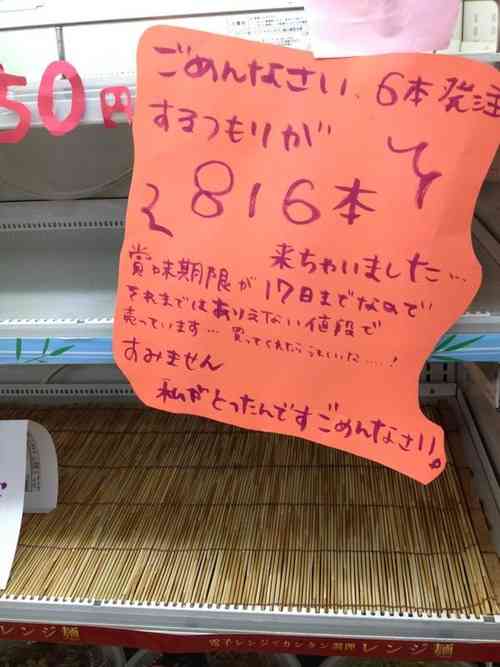 50円
ごめんなさい、6本発注
するつもりが
816本
来ちゃいました…
賞味期限が17日までなので
それまではありえない値段で
売っています… 買ってくれたらうれしいな…!
すみません
私がとったんですごめんなさい。
レンジ麺
電子レンジでカンタン調理 レンジ麺